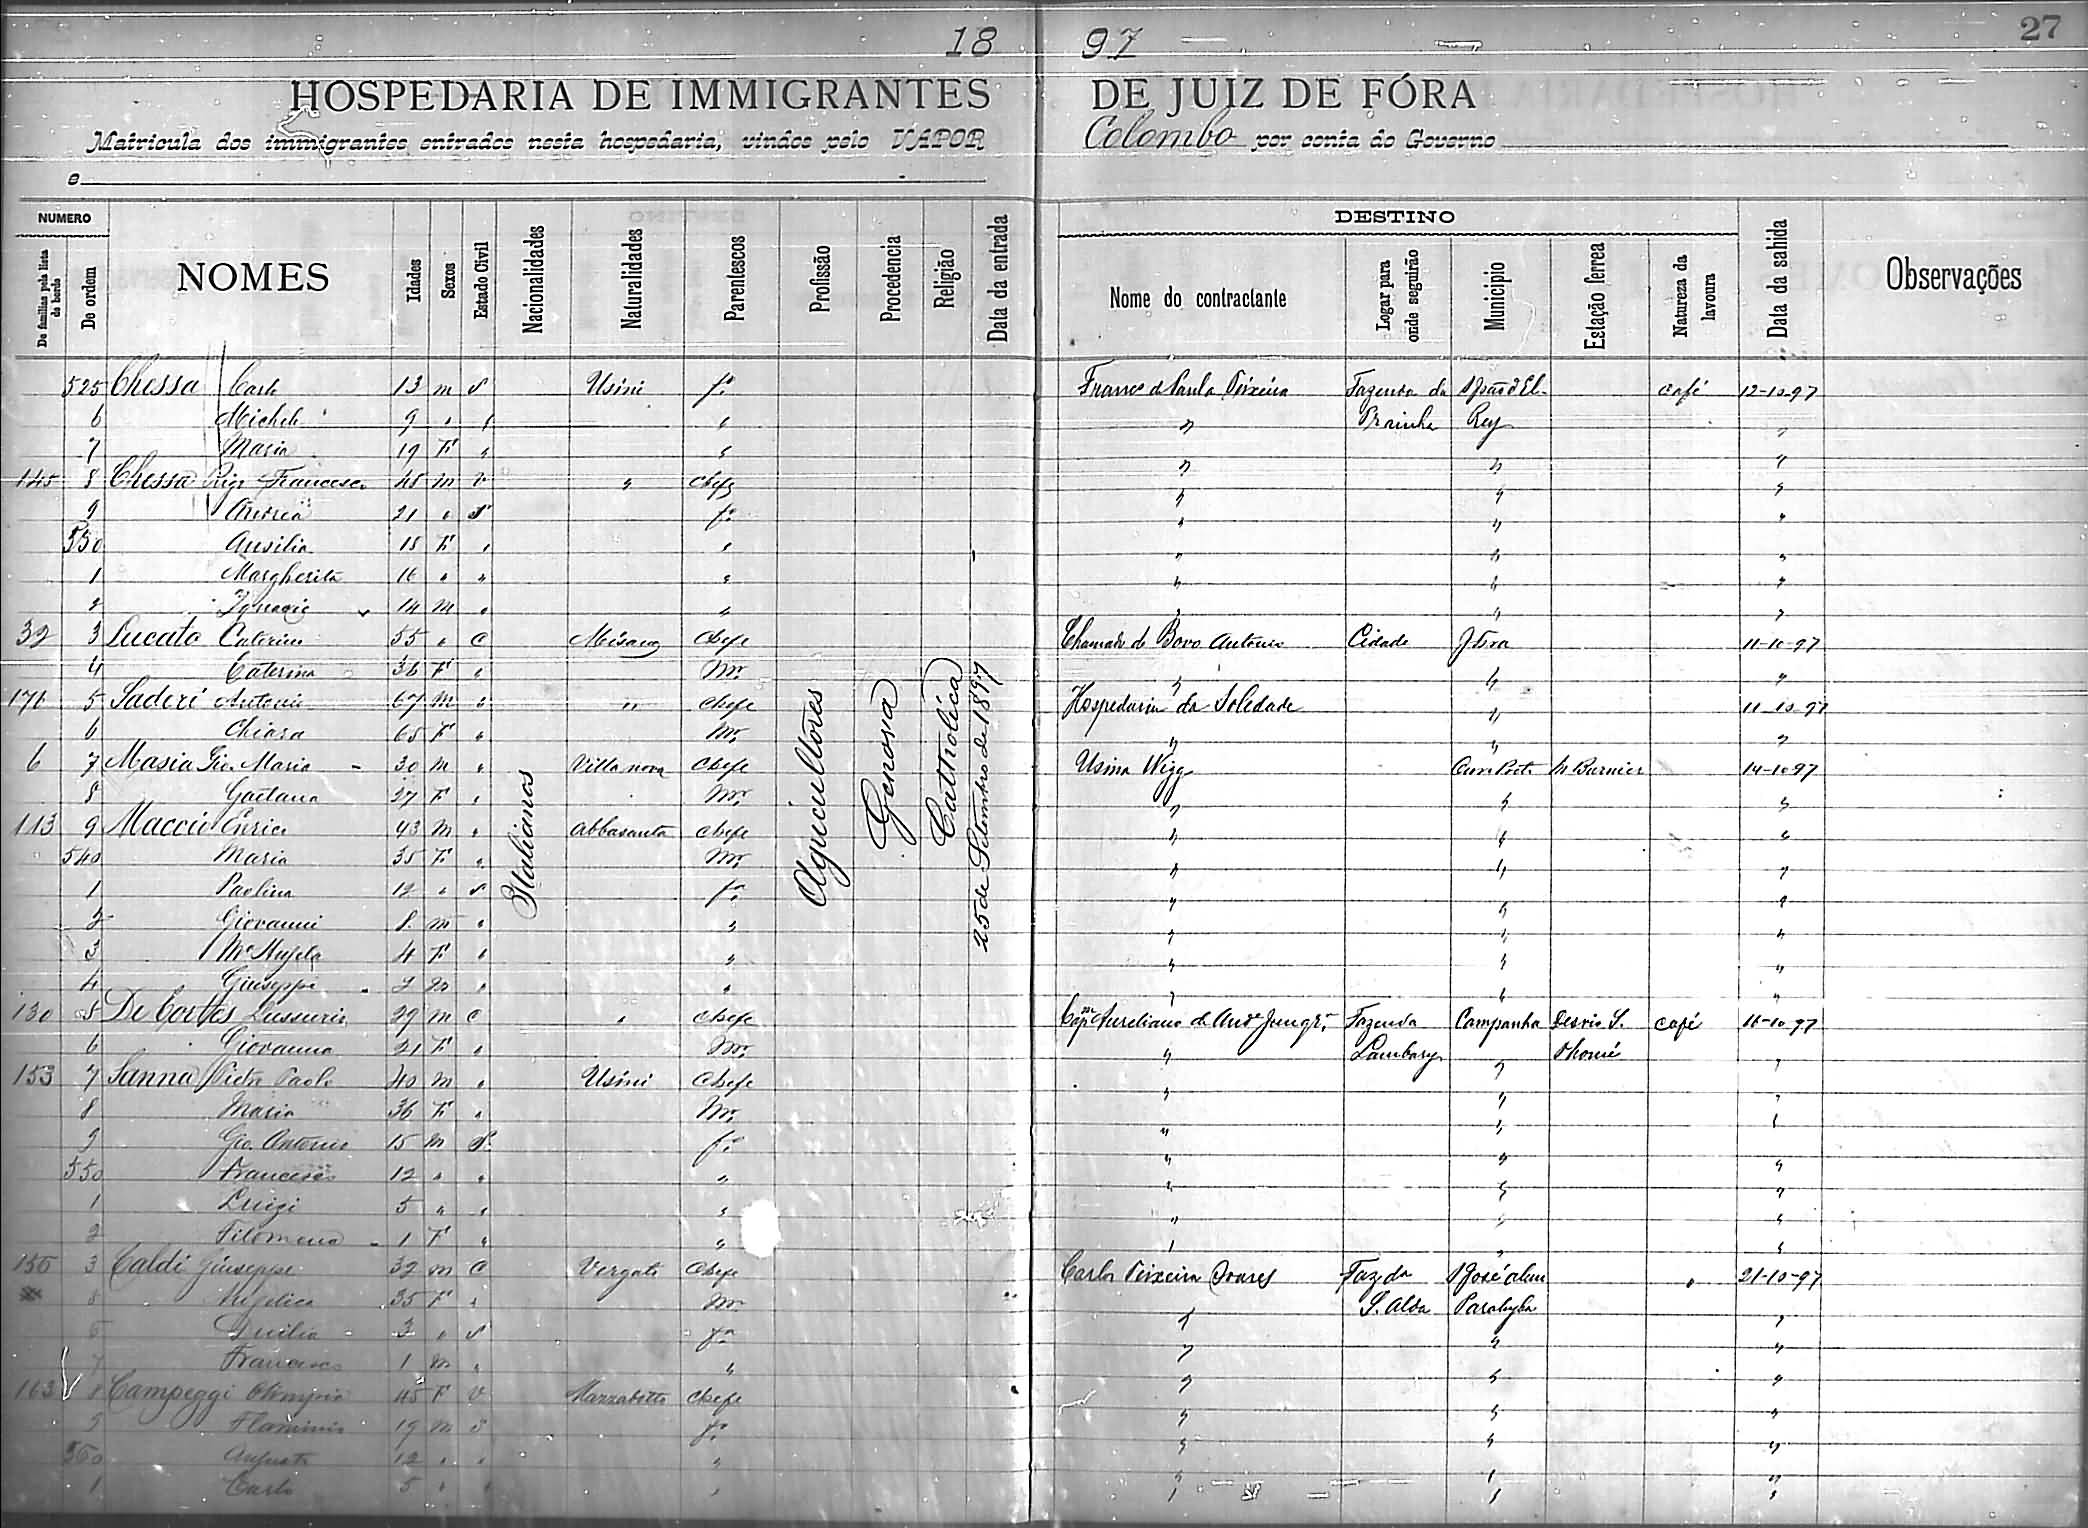 18 97 27
HOSPEDARIA DE IMMIGRANTES DE JUIZ DE FÓRA
Matricula dos immigrantes entrados nesta hospedaria, vindos pelo VAPOR Colombo por conta do Governo
e
NUMERO DESTINO
De familias pela lista de bordo De ordem NOMES Idades Sexos Estado Civil Nacionalidades Naturalidades Parentescos Profissão Procedencia Religião Data da entrada Nome do contractante Logar para onde seguirão Municipio Estação ferrea Natureza da lavoura Data da sahida Observações
Italianos Agricultores Genova Catholica 25 de Setembro de 1897
525 Chessa Carlo 13 m S Usini fo Franco de Paula Teixeira Fazenda da S João d'El- café 12-10-97
6 Michele 9 " " " " Prainha Rey "
7 Maria 19 F " " " " "
145 8 Chessa Francesco 48 m V " Chefe " " "
9 Andrea 21 " S fo " " "
530 Ausilia 18 F " " " " "
1 Margherita 16 " " " " " "
2 Ignacio 14 m " " " " "
32 3 Lucato 55 " C Chefe Chamado de Bovo Antonio Cidade J Fora 11-10-97
4 Caterina 36 F " Mr " " "
176 5 Saderi Antonio 67 m " " Chefe Hospedaria da Soledade " 11-10-97
6 Chiara 65 F " Mr " " "
6 7 Masia Gio. Maria 30 m " Villanova Chefe Usina Wigg Ouro Preto M Burnier 14-10-97
8 Gaetana 27 F " Mr " " "
113 9 Enrico 43 m " Abbasanta Chefe " " "
540 Maria 35 F " Mr " " "
1 Paolina 12 " S fa " " "
2 Giovanni 8 m " " " " "
3 Ma Angela 4 F " " " " "
4 Giuseppe 2 m " " " " "
130 5 De Cortes 29 m C " Chefe Capm Aureliano de Fazenda Campanha Desvio S. café 16-10-97
6 Giovanna 21 F " Mr " Lambary " Thomé "
153 7 Sanna Pietro Paolo 40 m " Usini Chefe " " "
8 Maria 36 F " Mr " " "
9 Gio. Antonio 15 m S. fo " " "
550 Francesco 12 " " " " " "
1 Luigi 5 " " " " " "
2 Filomena 1 F " " " " "
155 3 Caldi Giuseppe 32 m C Vergato Chefe Carlos Teixeira Soares Faz. da S José alem " 21-10-97
Angelica 35 F " Mr " S. Alda Parahyba "
Duilia 3 " S fa " " "
7 Francesco 1 m " " " " "
163 8 Campeggi Olimpia 45 F V Marzabotto Chefe " " "
9 Flaminio 19 m S fo " " "
560 Augusto 12 " " " " " "
1 Carlo 5 " " " " " "